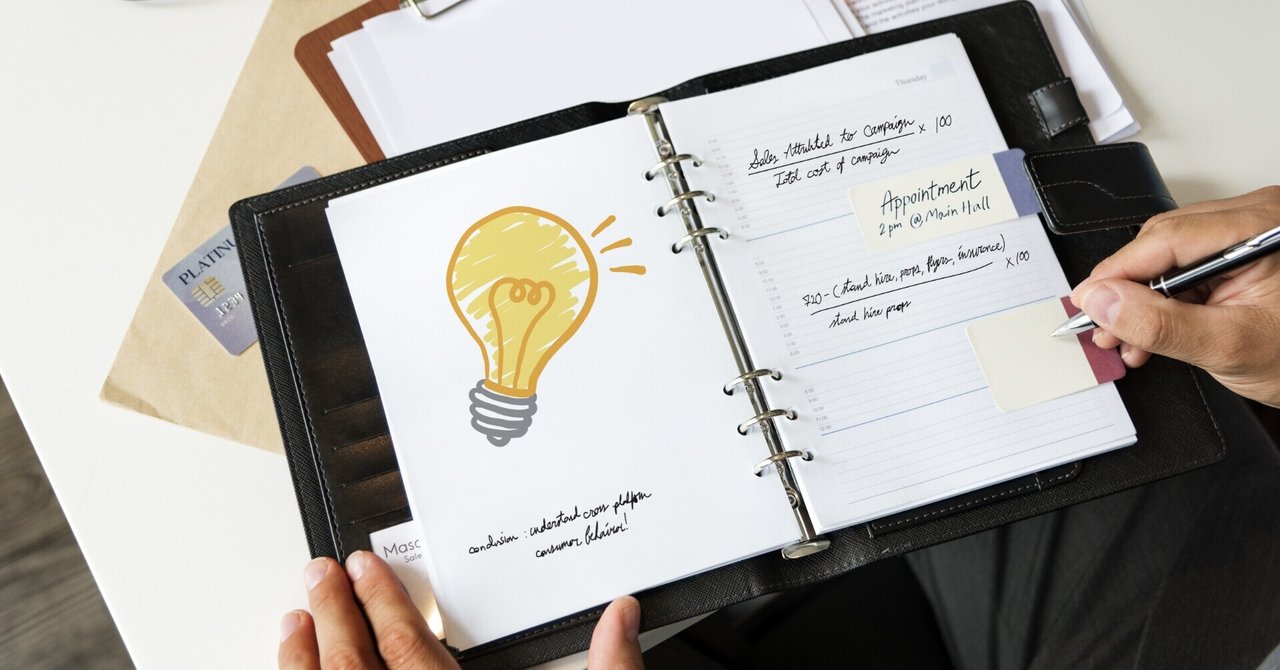 PLATINU
1234
Masc
Sale
conclusion : understand cross platform
consumer behavior!
Thursday
Sales Attributed to Campaign x 100
Total cost of campaign
Appointment
2 pm @ Main Hall
720 - (stand hire, props, flyers, insurance) x 100
stand hire props